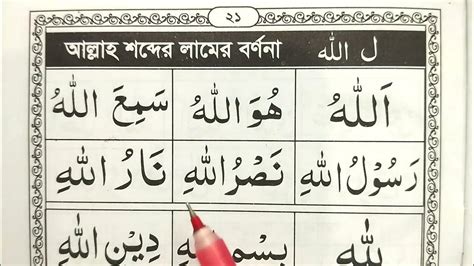 ২১
আল্লাহ শব্দের লামের বর্ণনা ل الله
اَللهُ هُوَ اللهُ سَمِعَ اللهُ
رَسُوْلُ اللهِ نَصْرُ اللهِ نَارُ اللهِ
لِلهِ بِسْمِ اللهِ دِيْنِ اللهِ